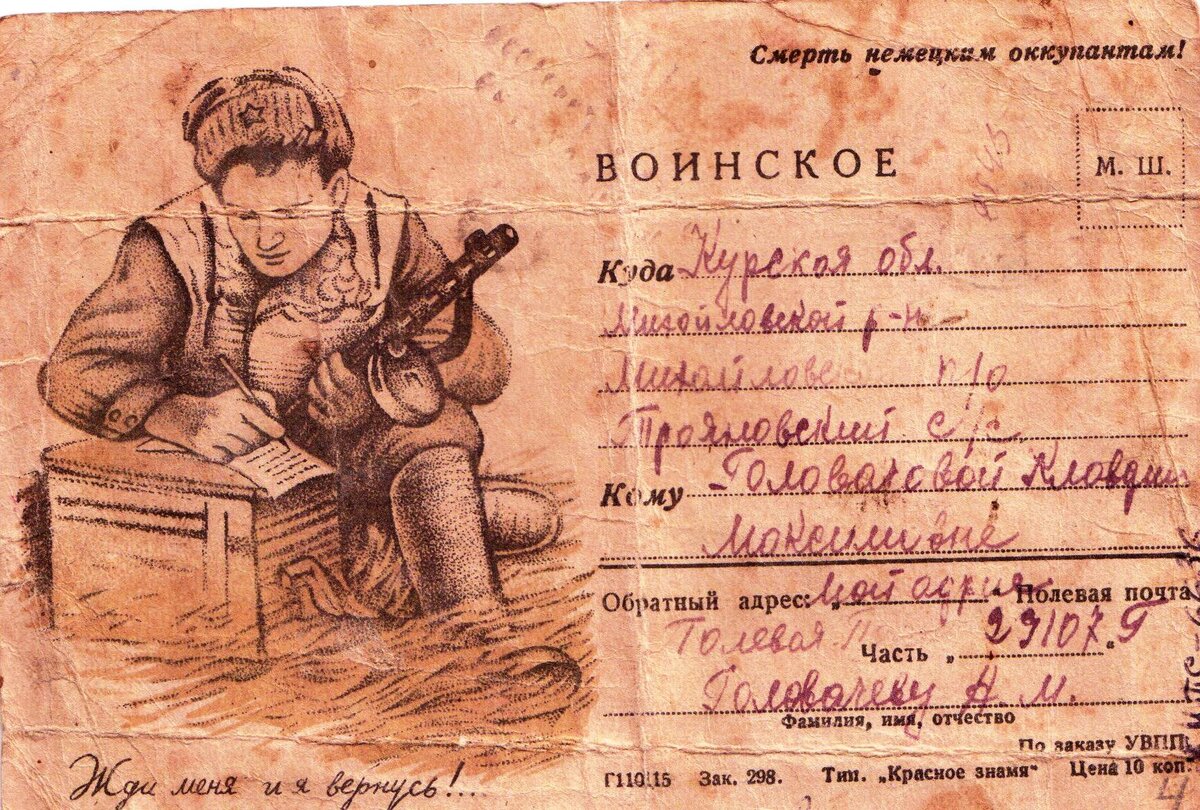 Смерть немецким оккупантам!
ВОИНСКОЕ
М. Ш.
Куда Курская обл.
Михайловской р-н
Михайловс п/о
Трояновский с/с
Кому Головачовой Клавдии
Максимовне
Обратный адрес: „Мой адрес“ Полевая почта
Полевая По Часть „29107 Г“
Головачеву А. М.
Фамилия, имя, отчество
По заказу УВПП
Г110115 Зак. 298. Тип. „Красное знамя“ Цена 10 коп.
Жди меня и я вернусь!...